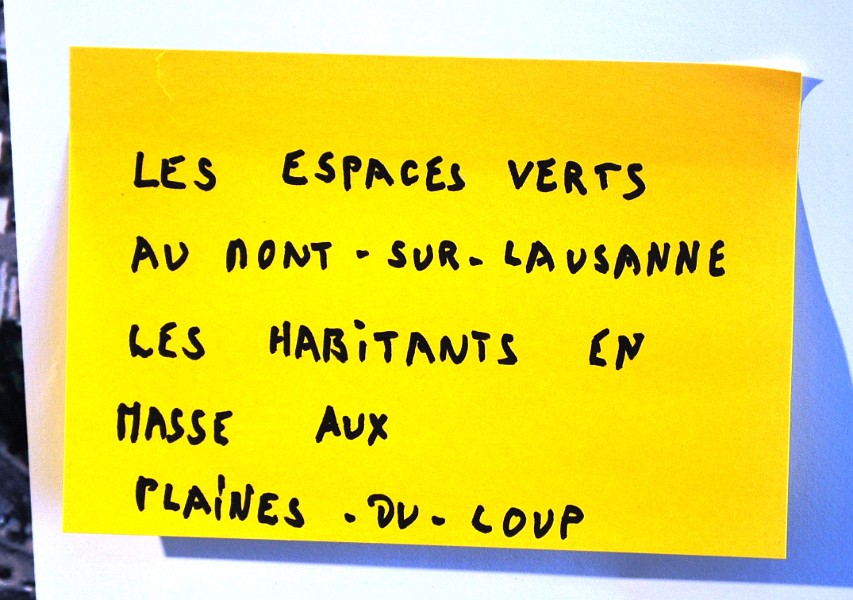 LES ESPACES VERTS
AU MONT-SUR-LAUSANNE
LES HABiTANTS EN
MASSE AUX
PLAiNES-DU-LOUP